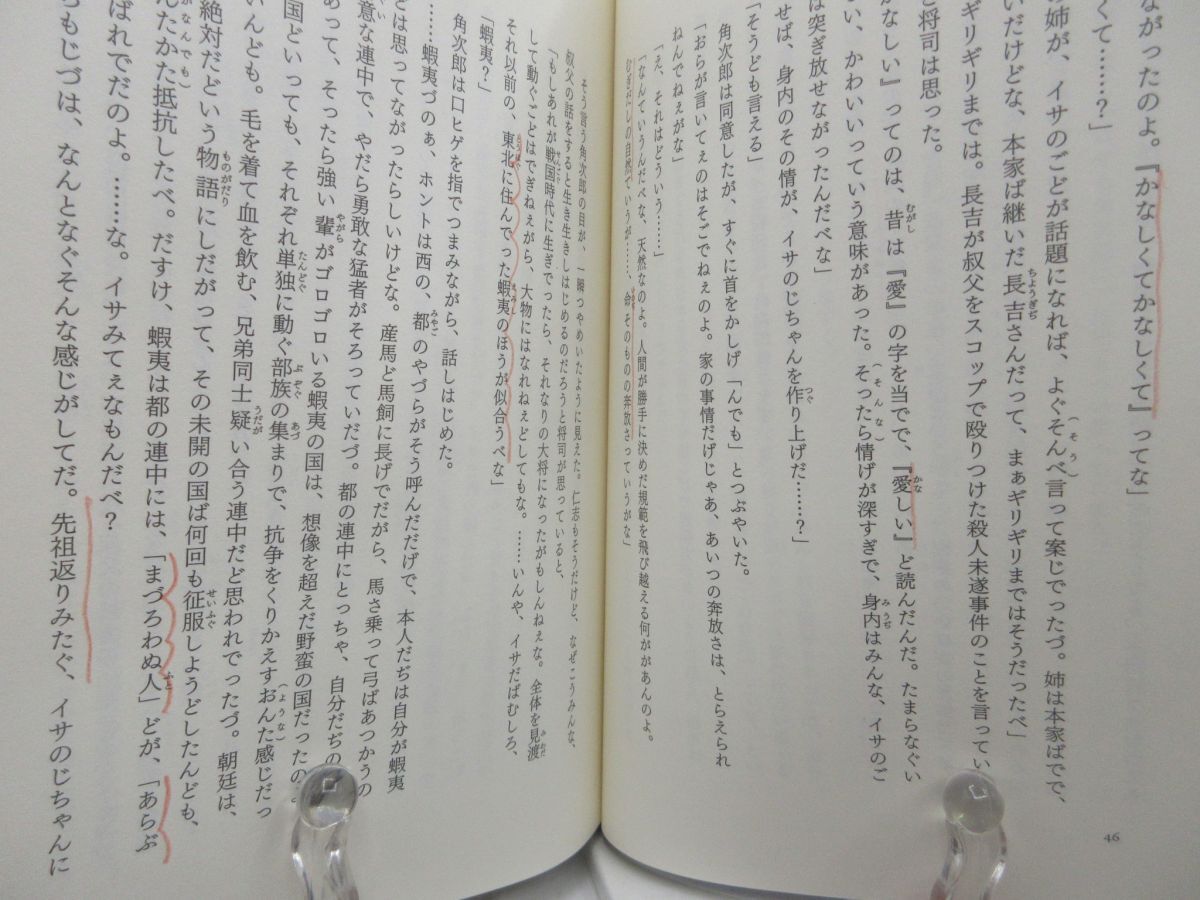 ながったのよ。『かなしくてかなしくて』ってな」
くて……？」
の姉が、イサのごどが話題になれば、よぐそんべ言って案じでったづ。姉は本家ばでで、
いだけどな、本家ば継いだ長吉さんだって、まぁギリギリまではそうだったべ」
ギリギリまでは。長吉が叔父をスコップで殴りつけた殺人未遂事件のことを言ってい
と将司は思った。
かなしい』ってのは、昔は『愛』の字を当でで、『愛しい』ど読んだんだ。たまらなぐい
い、かわいいっていう意味があった。そったら情げが深すぎで、身内はみんな、イサのご
は突ぎ放せながったんだべな」
せば、身内のその情が、イサのじちゃんを作り上げだ……？」
「そうども言える」
角次郎は同意したが、すぐに首をかしげ「んでも」とつぶやいた。
「おらが言いてぇのはそこでねぇのよ。家の事情だげじゃあ、あいつの奔放さは、とらえられ
ねんでねぇがな」
「え、それはどういう……」
「なんていうんだべな、天然なのよ。人間が勝手に決めだ規範を飛び越える何ががあんのよ。
むぎだしの自然ていうが……、命そのものの奔放さっていうがな」
46
そう言う角次郎の目が、一瞬つやめいたように見えた。仁志もそうだけど、なぜこうみんな、
叔父の話をすると生き生きしはじめるのだろうと将司が思っていると、
「もしあれが戦国時代に生ぎでったら、それなりの大将になったがもしんねぇな。全体を見渡
して動ぐごどはでぎねぇがら、大物にはなれねぇどしてもな。……いんや、イサだばむしろ、
それ以前の、東北に住んでった蝦夷のほうが似合うべな」
「蝦夷？」
角次郎は口ヒゲを指でつまみながら、話しはじめた。
「……蝦夷づのぁ、ホントは西の、都のやづらがそう呼んだだげで、本人だぢは自分が蝦夷
どは思ってながったらしいけどな。産馬ど馬飼に長げでだがら、馬さ乗って弓ばあつかうの
意な連中で、やだら勇敢な猛者がそろっていだづ。都の連中にとっちゃ、自分だぢの
あって、そったら強い輩がゴロゴロいる蝦夷の国は、想像を超えだ野蛮の国だったの
国どいっても、それぞれ単独に動ぐ部族の集まりで、抗争をくりかえすおんた感じだっ
いんども。毛を着て血を飲む、兄弟同士疑い合う連中だど思われでったづ。朝廷は、
絶対だという物語にしだがって、その未開の国ば何回も征服しようどしたんども、
んたかた抵抗したべ。だすけ、蝦夷は都の連中には、「まづろわぬ人」どが、「あらぶ
ばれでだのよ。……な。イサみてぇなもんだべ？
らもじづは、なんとなぐそんな感じがしてだ。先祖返りみたぐ、イサのじちゃんに